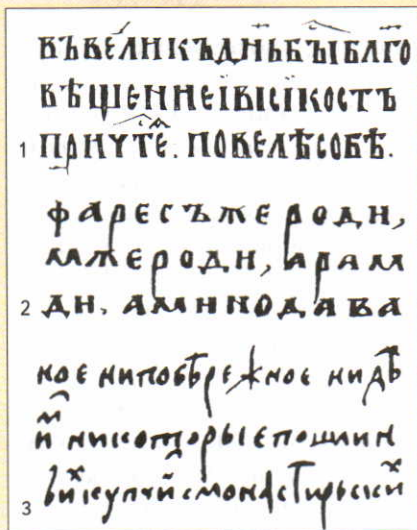 ВЪВЕЛИКЪДН҃ЬБЫБЛ҃ГО
ВѢЩЕНИЕЇВЫСЇКОСТЪ
1 ПРИЧТЕ. ПОВЕЛѢСОБѢ.
ФАРЕСЪЖЕ РОДИ,
МЖЕРОДИ, АРАМ
2 ДИ. АМИНОДАВА
ное нипобережное нидѣ
й никоторыепошлин
3 купчи монастирьски